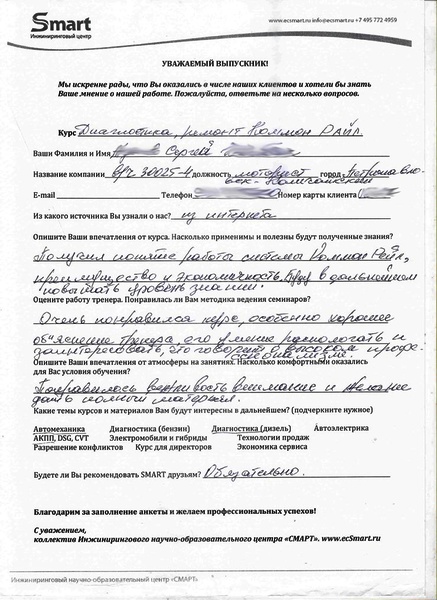 Smart
Инжиниринговый центр
www.ecsmart.ru info@ecsmart.ru +7 495 772 4959
УВАЖАЕМЫЙ ВЫПУСКНИК!
Мы искренне рады, что Вы оказались в числе наших клиентов и хотели бы знать
Ваше мнение о нашей работе. Пожалуйста, ответьте на несколько вопросов.
Курс Диагностика, ремонт Коммон Райл
Ваши Фамилия и Имя Сергей
Название компании в/ч 30025-4 должность моторист город Петропавло-
вск-Камчатский
E-mail Телефон Номер карты клиента
Из какого источника Вы узнали о нас? из интернета
Опишите Ваши впечатления от курса. Насколько применимы и полезны будут полученные знания?
Получил понятие работы системы Коммон Рейл,
преимущество и экономичность. Буду в дальнейшем
повышать уровень знаний.
Оцените работу тренера. Понравилась ли Вам методика ведения семинаров?
Очень понравился курс, особенно хорошее
объяснение тренера, его умение распологать и
заинтересовать, это говорит о высоком профе-
ссионализме.
Опишите Ваши впечатления от атмосферы на занятиях. Насколько комфортными оказались
для Вас условия обучения?
Понравилось вежливость внимание и желание
дать полный материал.
Какие темы курсов и материалов Вам будут интересны в дальнейшем? (подчеркните нужное)
Автомеханика Диагностика (бензин) Диагностика (дизель) Автоэлектрика
АКПП, DSG, CVT Электромобили и гибриды Технологии продаж
Разрешение конфликтов Курс для директоров Экономика сервиса
Будете ли Вы рекомендовать SMART друзьям? Обязательно.
Благодарим за заполнение анкеты и желаем профессиональных успехов!
С уважением,
коллектив Инжинирингового научно-образовательного центра «СМАРТ». www.ecSmart.ru
Инжиниринговый научно-образовательный центр «СМАРТ»